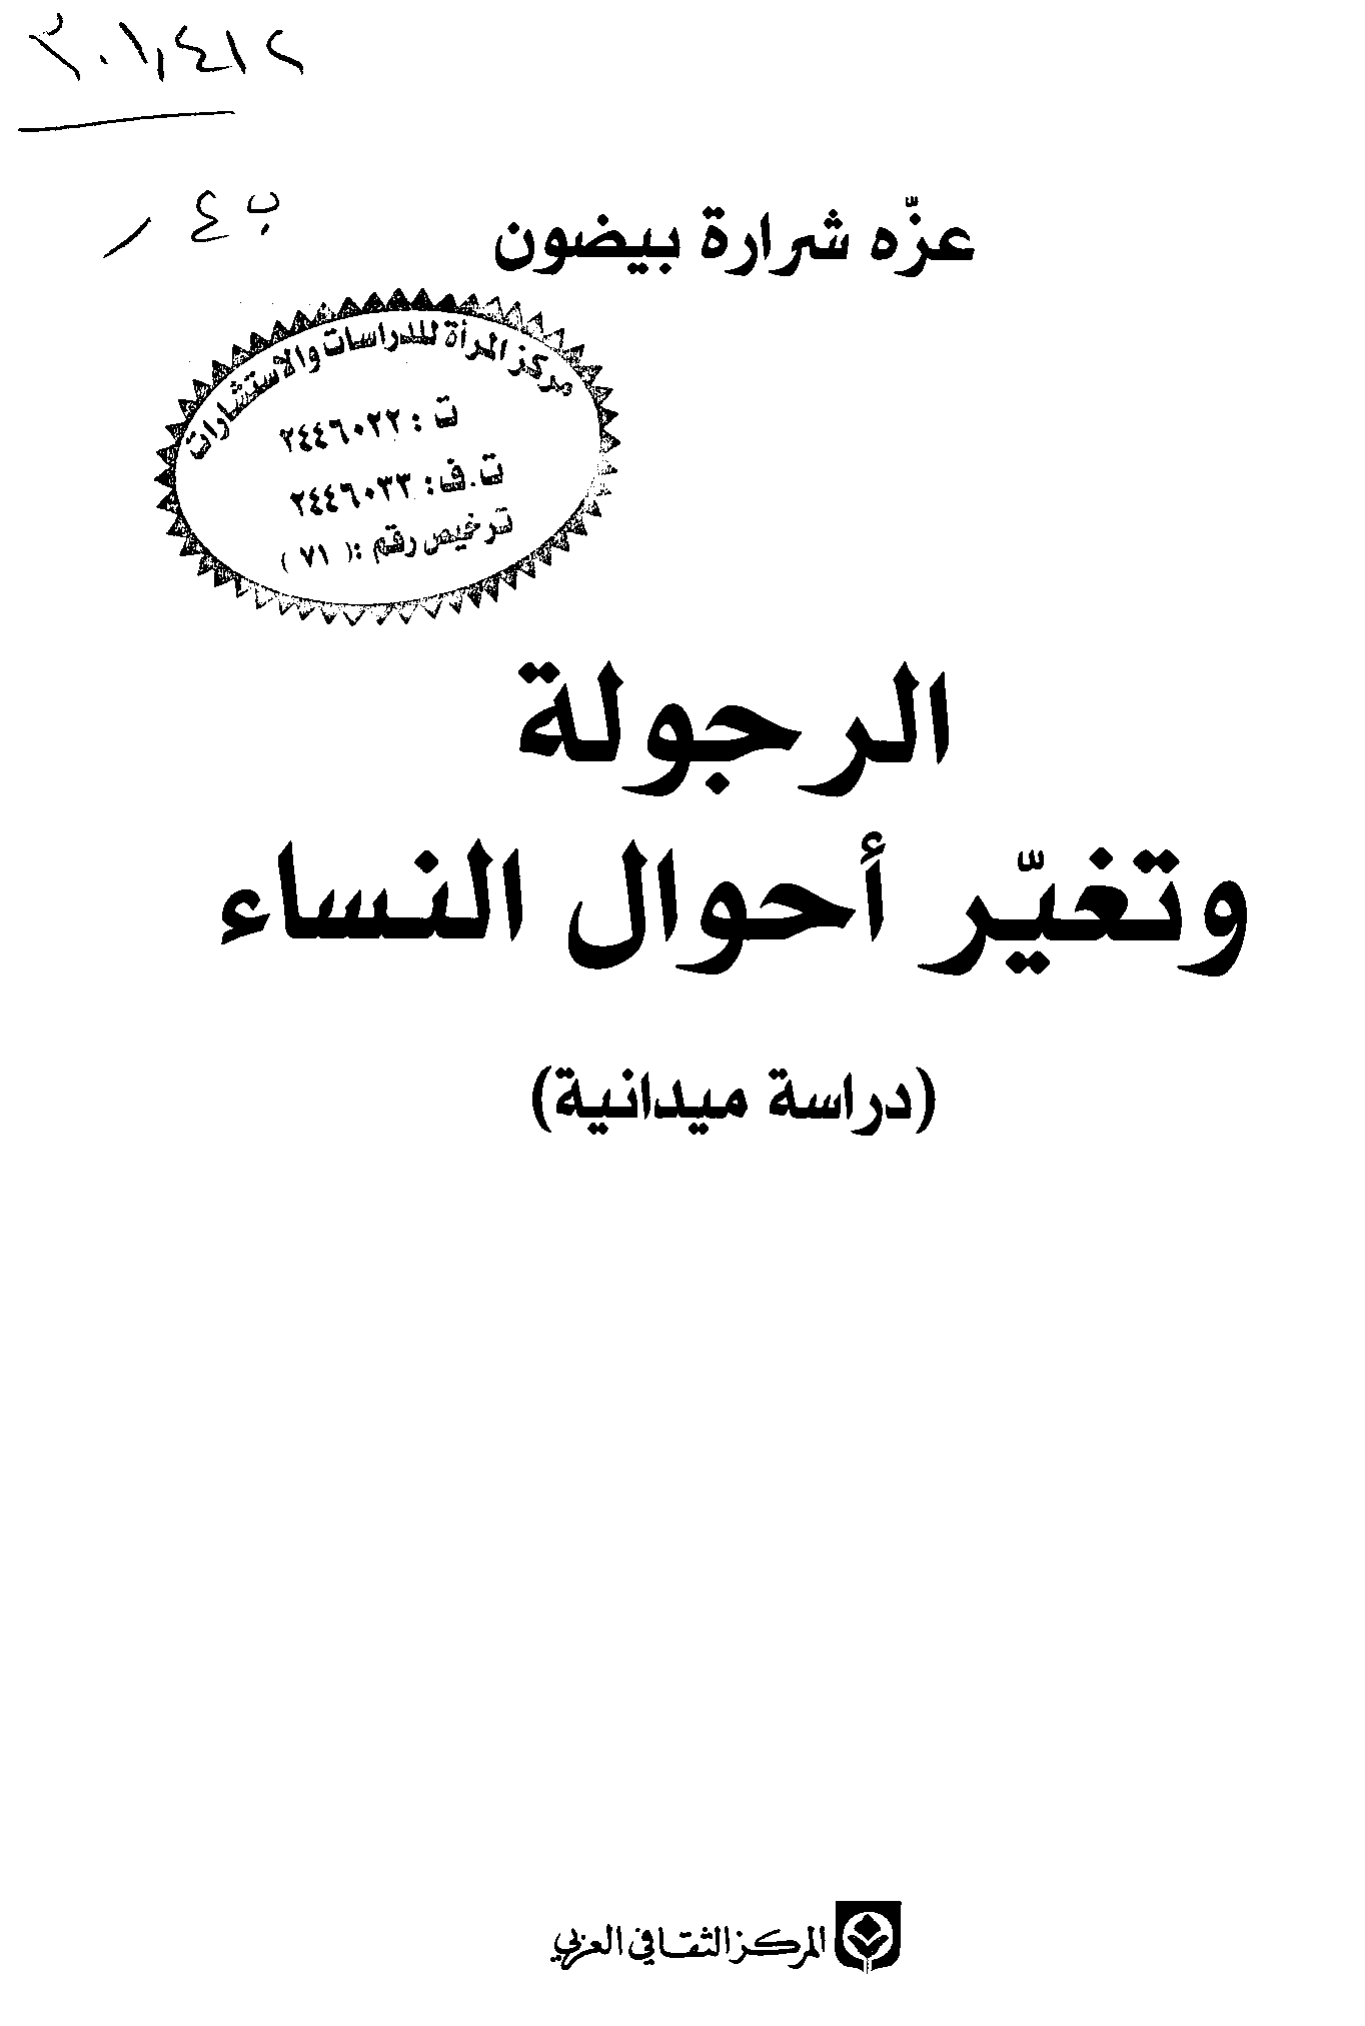 ٣٠١,٤١٢
ب ٤ ر
عزّه شرارة بيضون
مركز المرأة للدراسات والاستشارات
ت : ٢٤٤٦٠٢٢
ت.ف: ٢٤٤٦٠٣٣
ترخيص رقم :( ٧١ )
الرجولة
وتغيّر أحوال النساء
(دراسة ميدانية)
المركز الثقافي العربي